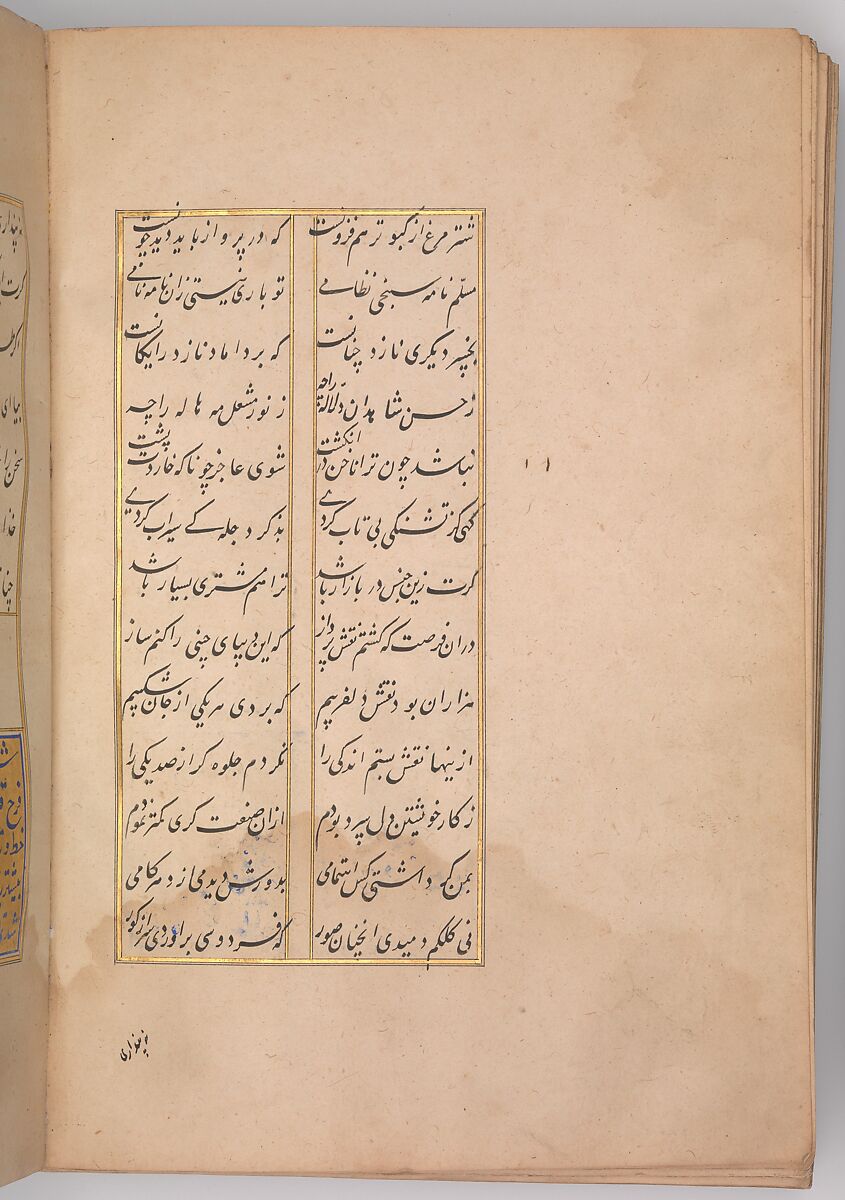 شتر مرغ از کبوتر هم فزونست که در پرواز باید دید چونست
مسلّم نامه سنجی نظامی تو باری نیستی زان نامه نامی
بخسر دیگری نازد چنانست که بر داماد نازد رایگانست
ز حسن شاهدان دلّاله را چه ز نور مشعل مه هاله را چه
نباشد چون ترا ناخن در انگشت شوی عاجز چو ناگه خاردت پشت
گهی کز تشنگی بی تاب گردی بذکر دجله کے سیراب گردی
گرت زین جنس در بازار باشد ترا هم مشتری بسیار باشد
دران فرصت که گشتم نقش پرداز که این دیبای چینی را کنم ساز
هزاران بود نقش دلفریبم که بردی هر یکی از جان شکیبم
ازینها نقش بستم اندکی را نکردم جلوه گر از صد یکی را
ز کار خویشتن دل سرد بودم ازان صنعت گری کمتر نمودم
بمن گر داشتی کس اهتمامی بدورش دیدمی از دهر کامی
نی کلکم دمیدی انچنان صور که فردوسی براوردی سر از گور